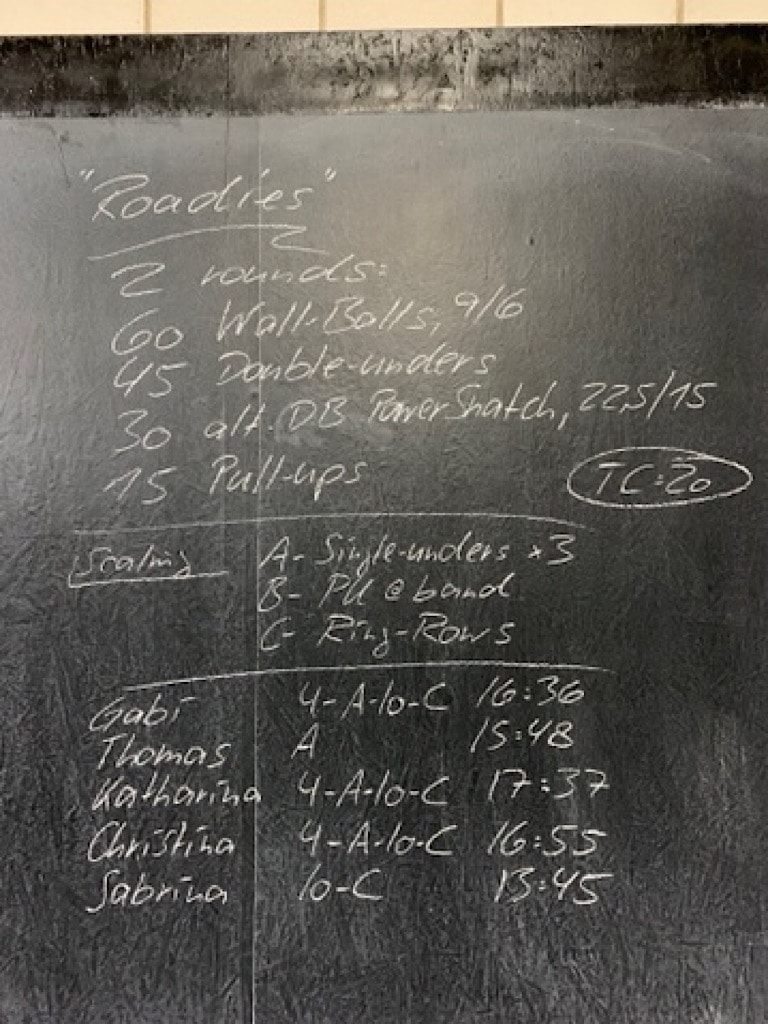 "Roadies"
2 rounds:
60 Wall-Balls, 9/6
45 Double-unders
30 alt. DB Power Snatch, 22,5/15
15 Pull-ups
TC:20
Scaling A- Single-unders x3
B- PU @ band
C- Ring-Rows
Gabi 4-A-10-C 16:36
Thomas A 15:48
Katharina 4-A-10-C 17:37
Christina 4-A-10-C 16:55
Sabrina 10-C 13:45